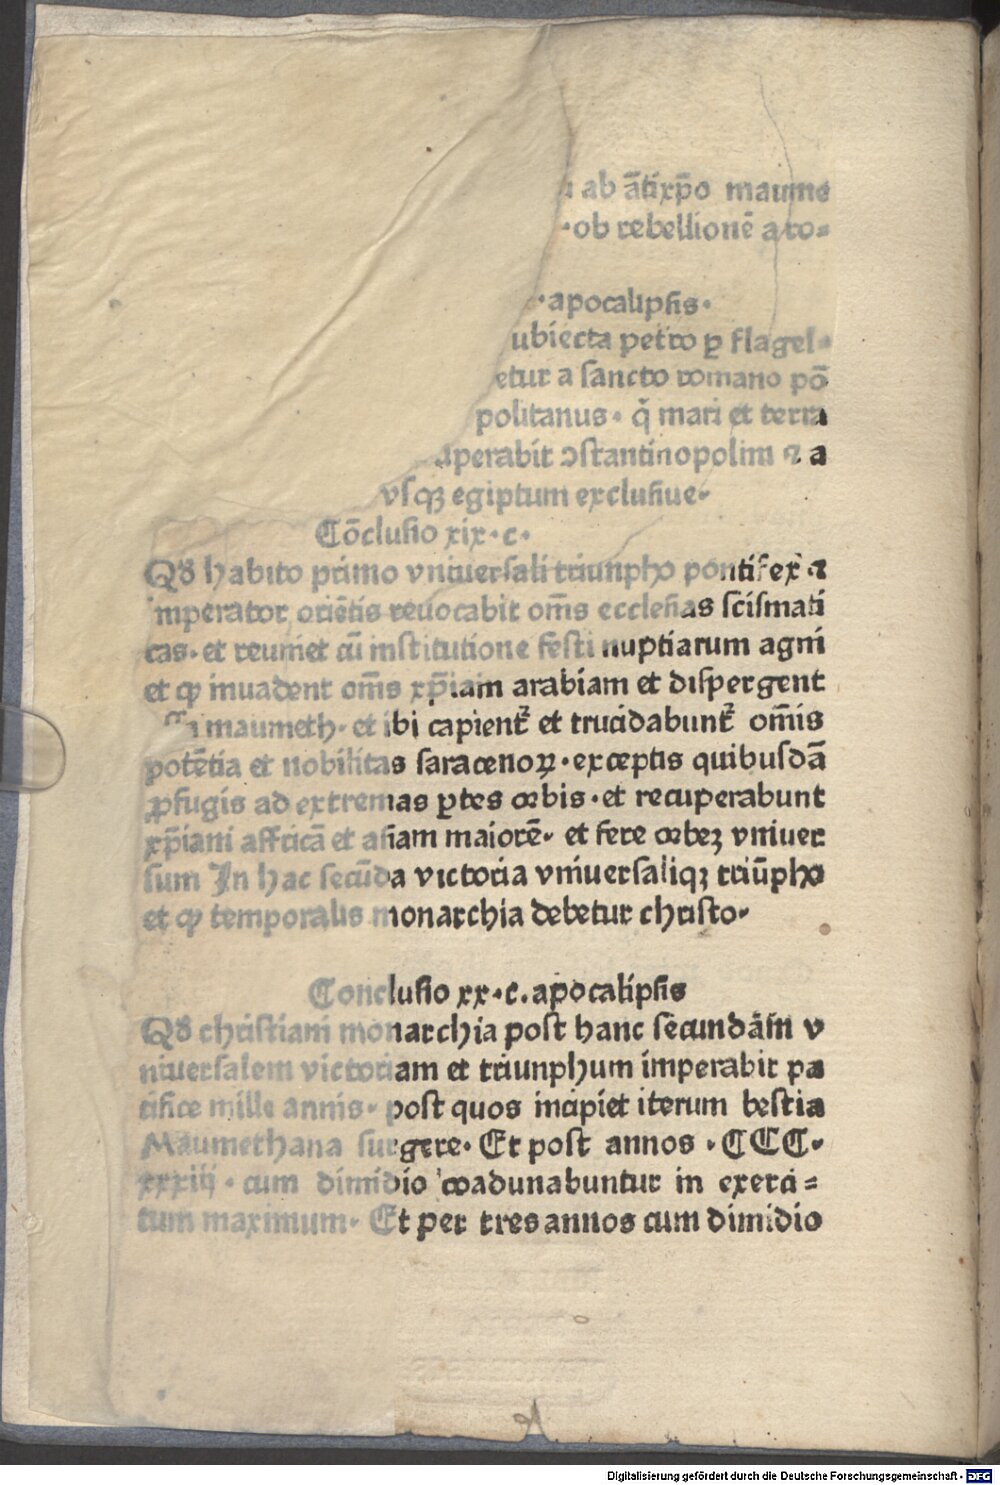 ab ãtixp̃o maume
ob rebellionẽ a ro-
apocalipsis.
ubiecta petro ꝑ flagel-
etur a sancto romano põ
politanus. q̃ mari et terra
uperabit ↄstantinopolim ⁊ a
vsqꝫ egiptum exclusiue.
Cõclusio xix. c.
Qđ habito primo vniuersali triunpho pontifex ⁊
imperator oriẽtis reuocabit om̃s ecclesias scismati
cas. et reuniet cũ institutione festi nuptiarum agni
et ꝙ inuadent om̃s xp̃iani iam arabiam et dispergent
maumeth. et ibi capient̃ et trucidabunt̃ om̃is
potẽtia et nobilitas saracenoꝝ. exceptis quibusdã
ꝓfugis ad extremas ꝑtes orbis. et recuperabunt
xp̃iani affricã et asiam maiorẽ. et fere orbeꝫ vniuer
sum In hac secũda victoria vniuersaliqꝫ triũpho
et ꝙ temporalis monarchia debetur christo.
Conclusio xx. c. apocalipsis
Qđ christiani monarchia post hanc secundãm v
niuersalem victoriam et triunphum imperabit pa
cifice mille annis. post quos incipiet iterum bestia
Maumethana surgere. Et post annos . CCC.
xxxiii . cum dimidio coadunabuntur in exerci=
tum maximum. Et per tres annos cum dimidio
Digitalisierung gefördert durch die Deutsche Forschungsgemeinschaft - DFG